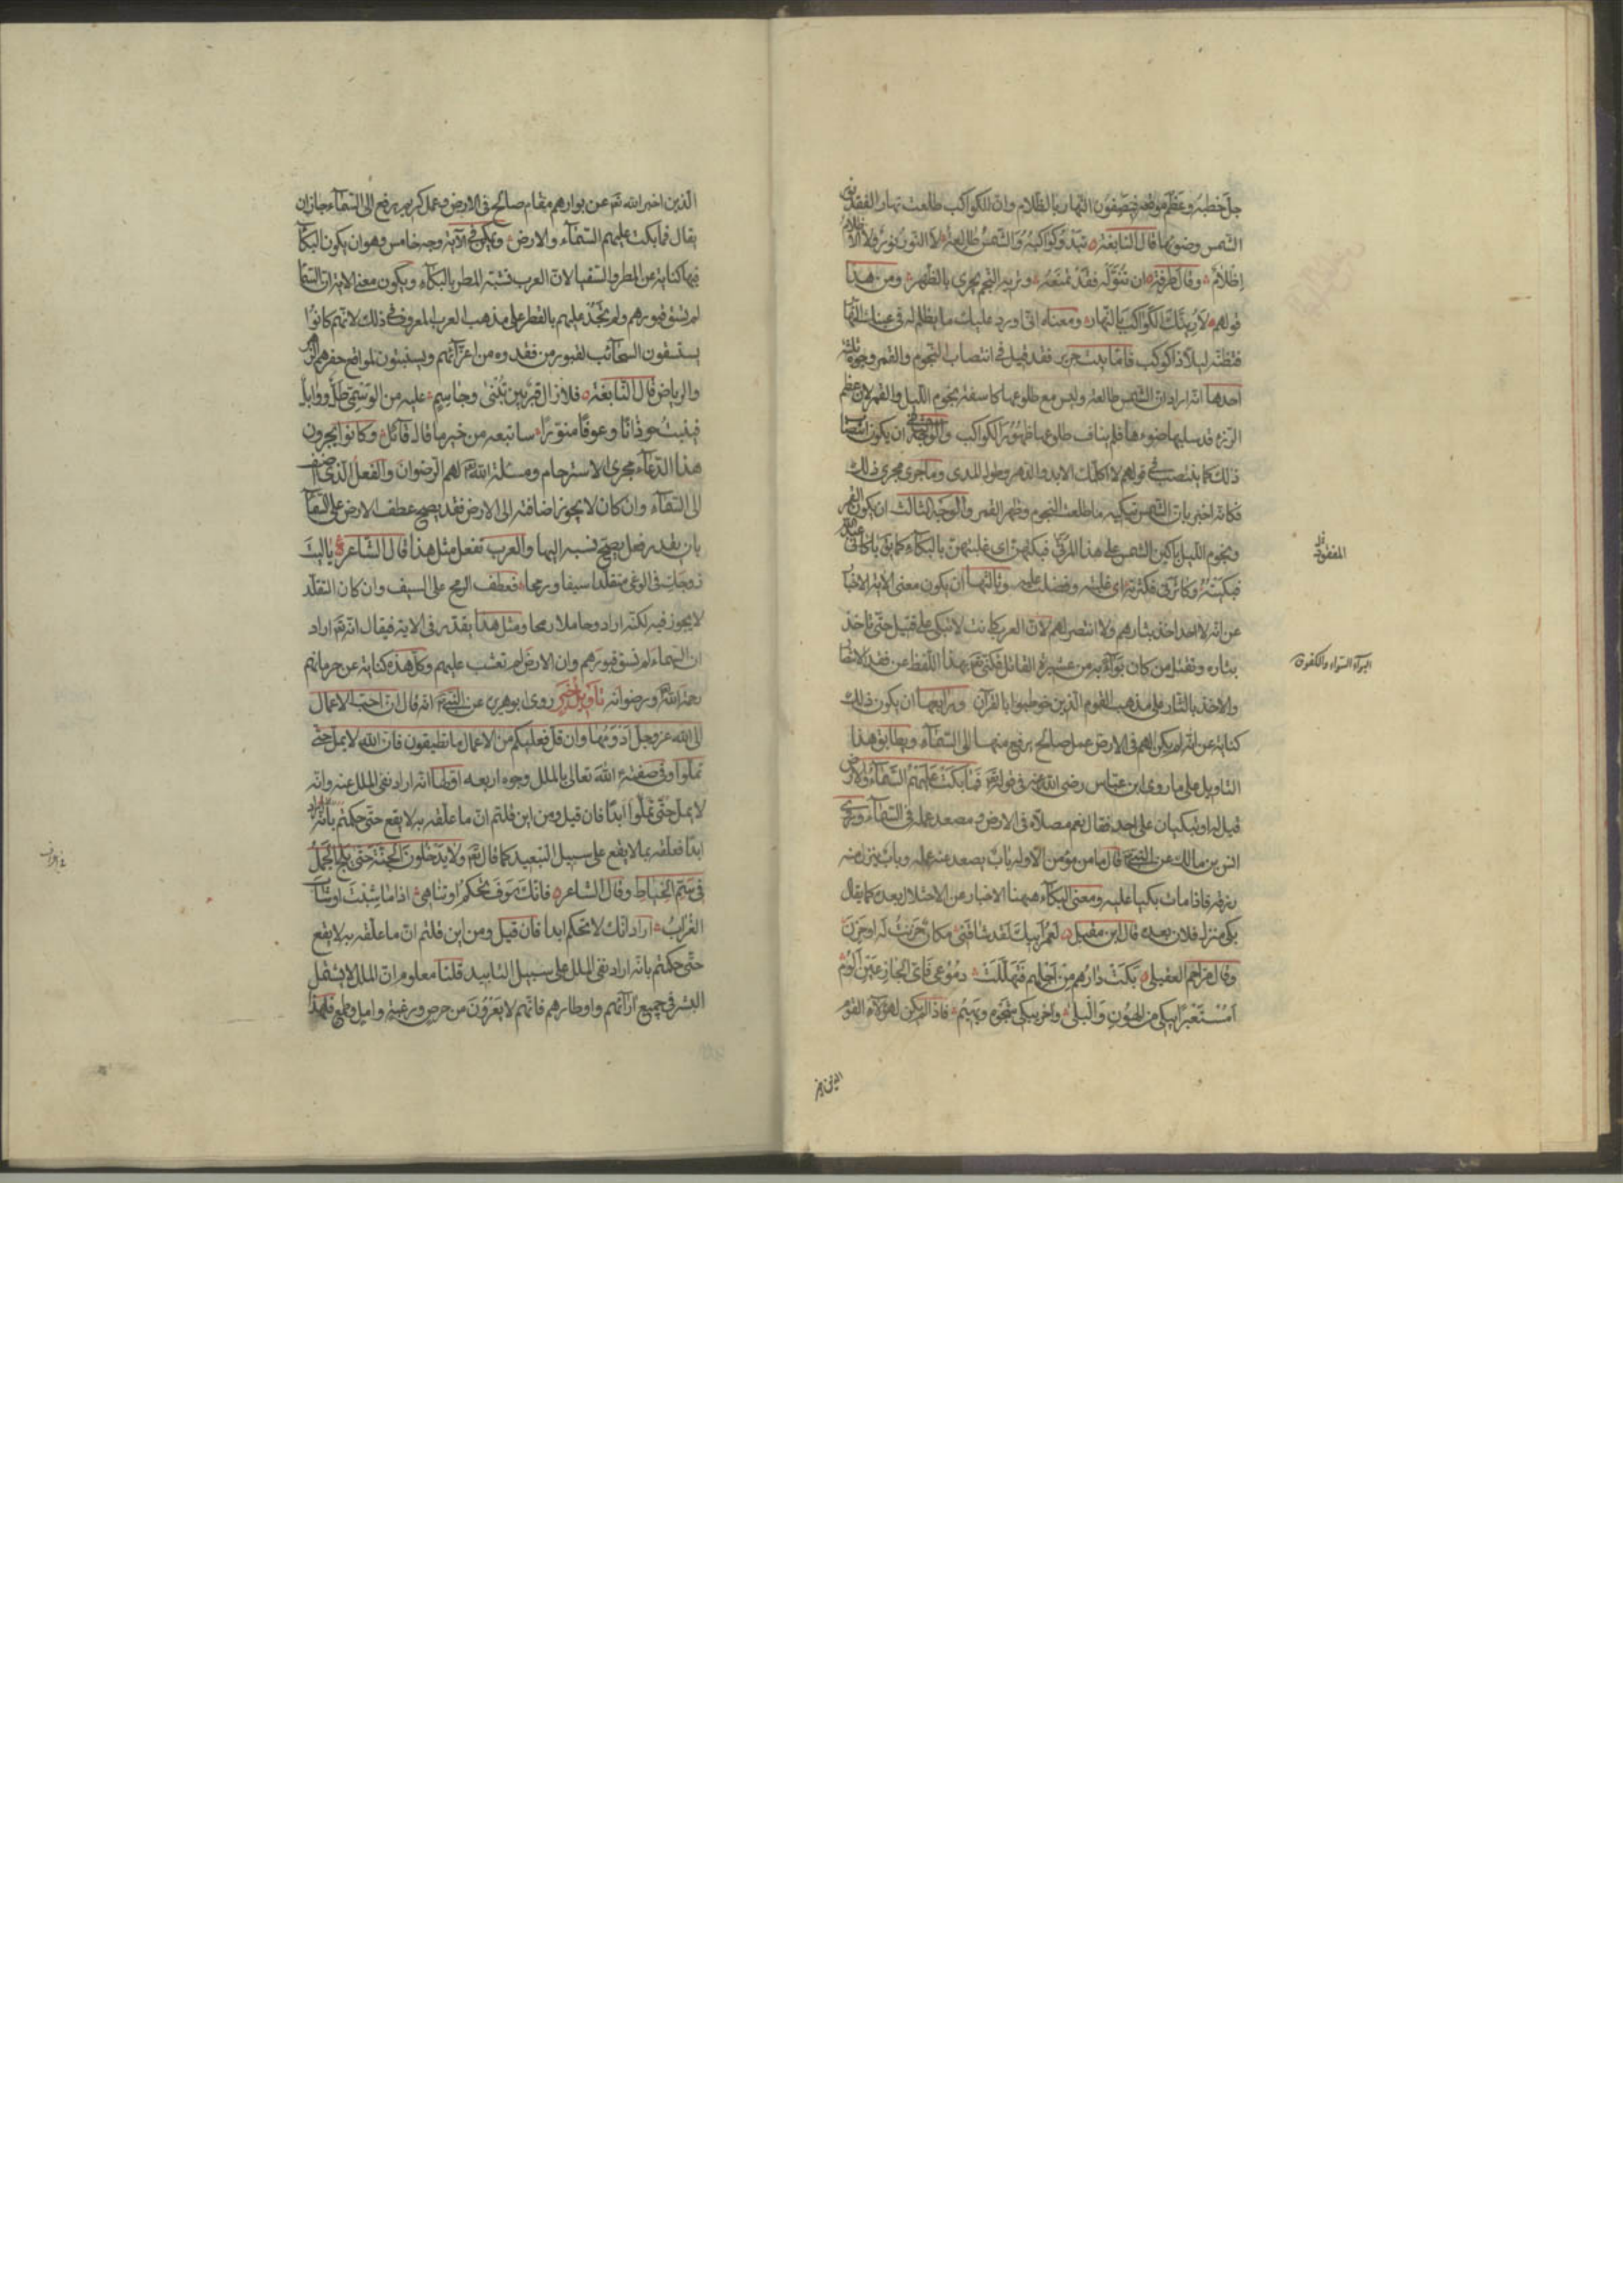 جلّ خطبه وعظم موقعه فيصفون النهار بالظلام وانّ الكواكب طلعت نهارا لفقد نور
الشمس وضوئها قال النابغة تبدو كواكبه والشمس طالعة لا النور نور ولا الاظلام
اظلام وقال طرفة ان تنوّله فقد تمنعه وتريه النجم يجري بالظهر ومن هذا
قولهم لأرينّك الكواكب بالنهار ومعناه اني اورد عليك ما يظلم له في عينك النهار
فتظنه ليلا ذا كوكب فامّا بيت جرير فقد قيل في انتصاب النجوم والقمر وجوه ثلثة
احدها انه اراد انّ الشمس طالعة وليس مع طلوعها كاسفة نجوم الليل والقمر لان عظم
الرزء قد سلبها ضوءها فلم يناف طلوعها ظهور الكواكب والوجه الثاني ان يكون انتصاب
ذلك كما ينتصب في قولهم لا اكلمك الابد والدهر وطول المدى وما جرى مجرى ذلك
فكانه اخبر بانّ الشمس تبكيه ما طلعت النجوم وظهر القمر والوجه الثالث ان يكون القمر
ونجوم الليل باكين الشمس على هذا المرثي فبكتهن اي غلبتهن بالبكاء كما يقال باكاني عبد الله
فبكيته وكاثرني فكثرته اي غلبته وفضلت عليه وثالثها ان يكون معنى الاية الاخبار
عن انه لا احد اخذ بثارهم ولا انتصر لهم لانّ العرب كانت لا تبكي على قتيل حتى تاخذ
بثاره وتقتل من كان بواء به من عشيرة القاتل فكنى تع بهذا اللفظ عن فقد الانتصار
والاخذ بالثار على مذهب القوم الذين خوطبوا بالقرآن ورابعها ان يكون ذلك
كناية عن انه لم يكن لهم في الارض عمل صالح يرفع منها الى السماء ويطابق هذا
التاويل على ما روى ابن عباس رضي الله عنه في قوله تع فما بكت عليهم السماء والارض
قيل له او يبكيان على احد فقال نعم مصلاه في الارض ومصعد عمله في السماء وروى
انس بن مالك عن النبي قال ما من مؤمن الا وله باب يصعد منه عمله وباب ينزل منه
رزقه فاذا مات بكيا عليه ومعنى البكاء ههنا الاخبار عن الاختلال بعده كما يقال
بكى منزل فلان بعده قال ابن مقبل لعمر ابيك لقد شاقني مكان حزنت له او حزن
وقال مزاحم العقيلي بكت دارهم من اجلهم فتهللت دموعي فاي الجازعين الوم
أمستعبرا يبكي من الهون والبلى وآخر يبكي شجوه ويهيم فاذا لم يكن لهؤلاء القوم
المفقود
البوآء السواء والكفوء
الذين اخبر
الذين اخبر الله تع عن بوارهم مقام صالح في الارض وعمل كريم يرفع الى السماء جاز ان
يقال فما بكت عليهم السماء والارض ويمكن في الآية وجه خامس وهو ان يكون البكاء
فيها كناية عن المطر والسقيا لانّ العرب تشبه المطر بالبكاء ويكون معنى الاية انّ السماء
لم تسق قبورهم ولم تجد عليهم بالقطر على مذهب العرب المعروف في ذلك لانهم كانوا
يستسقون السحائب لقبور من فقدوه من اعزائهم ويستنبتون لمواقع حفرهم الزهر
والرياض قال النابغة فلا زال قبر بين تبنى وجاسم عليه من الوسمي طلّ ووابل
فينبت حوذانا وعوفا منورا ساتبعه من خير ما قال قائل وكانوا يجرون
هذا الدعاء مجرى الاسترحام ومسئلة الله لهم الرضوان والفعل الذي اضيف
الى السماء وان كان لا يجوز اضافته الى الارض فقد يصح عطف الارض على السماء
بان يقدر فعل يصح نسبه اليها والعرب تفعل مثل هذا قال الشاعر يا ليت
زوجك في الوغى متقلدا سيفا ورمحا فعطف الرمح على السيف وان كان التقلد
لا يجوز فيه لكنه اراد وحاملا رمحا ومثل هذا يقدر في الاية فيقال انه تع اراد
ان السماء لم تسق قبورهم وان الارض لم تعشب عليهم وكل هذه كناية عن حرمانهم
رحمة الله ورضوانه تأويل خبر روى ابو هريرة عن النبي انه قال انّ احب الاعمال
الى الله عز وجل ادومها وان قل فعليكم من الاعمال ما تطيقون فان الله لا يمل حتى
تملوا وفي صفة الله تعالى بالملل وجوه اربعة اولها انه اراد نفى الملل عنه وانه
لا يمل حتى تملوا ابدا فان قيل ومن اين قلتم ان ما علقه به لا يقع حتى حكمتم بانه اراد
ابدا فعلقه بما لا يقع على سبيل التبعيد كما قال تع ولا يدخلون الجنة حتى يلج الجمل
في سمّ الخياط وقال الشاعر فانك سوف تحكم او تناهى اذا ما شبت او شاب
الغراب اراد انك لا تحكم ابدا فان قيل ومن اين قلتم انّ ما علقه به لا يقع
حتى حكمتم بانه اراد نفى الملل على سبيل التابيد قلنا معلوم ان الملل لا يشمل
البشر في جميع آرائهم واوطارهم فانهم لا يعرون من حرص ورغبة وامل وطمع فلهذا